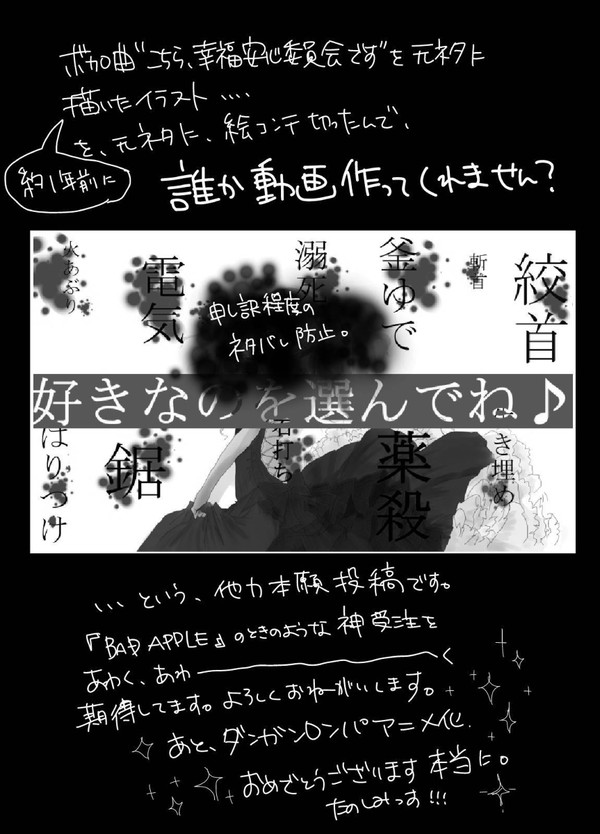 ボカロ曲"こちら、幸福安心委員会です"を元ネタに
描いたイラスト‥‥
を、元ネタに、絵コンテ切ったんで、
約1年前に
誰か動画作ってくれませんか?
絞首
斬首
釜ゆで
溺死
電気
火あぶり
申し訳程度の
ネタバレ防止。
好きなのを選んでね♪
生き埋め
薬殺
石打ち
鋸
はりつけ
‥‥という、他力本願投稿です。
『BAD APPLE』のときのような神受注を
あわく、あわ〜く
期待してます。よろしくおねーがいします。
あと、ダンガンロンパアニメ化
おめでとうございます 本当に。
たのしみっす!!!